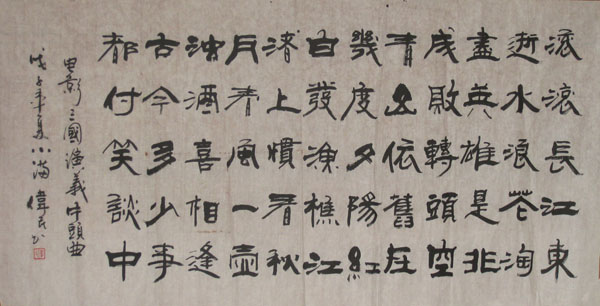 滾滾長江東
逝水浪花淘
盡英雄是非
成敗轉頭空
青山依舊在
幾度夕陽紅
白發漁樵江
渚上慣看秋
月春風一壺
浊酒喜相逢
古今多少事
都付笑談中
电影三國演義片頭曲
戊子年夏小滿偉民书